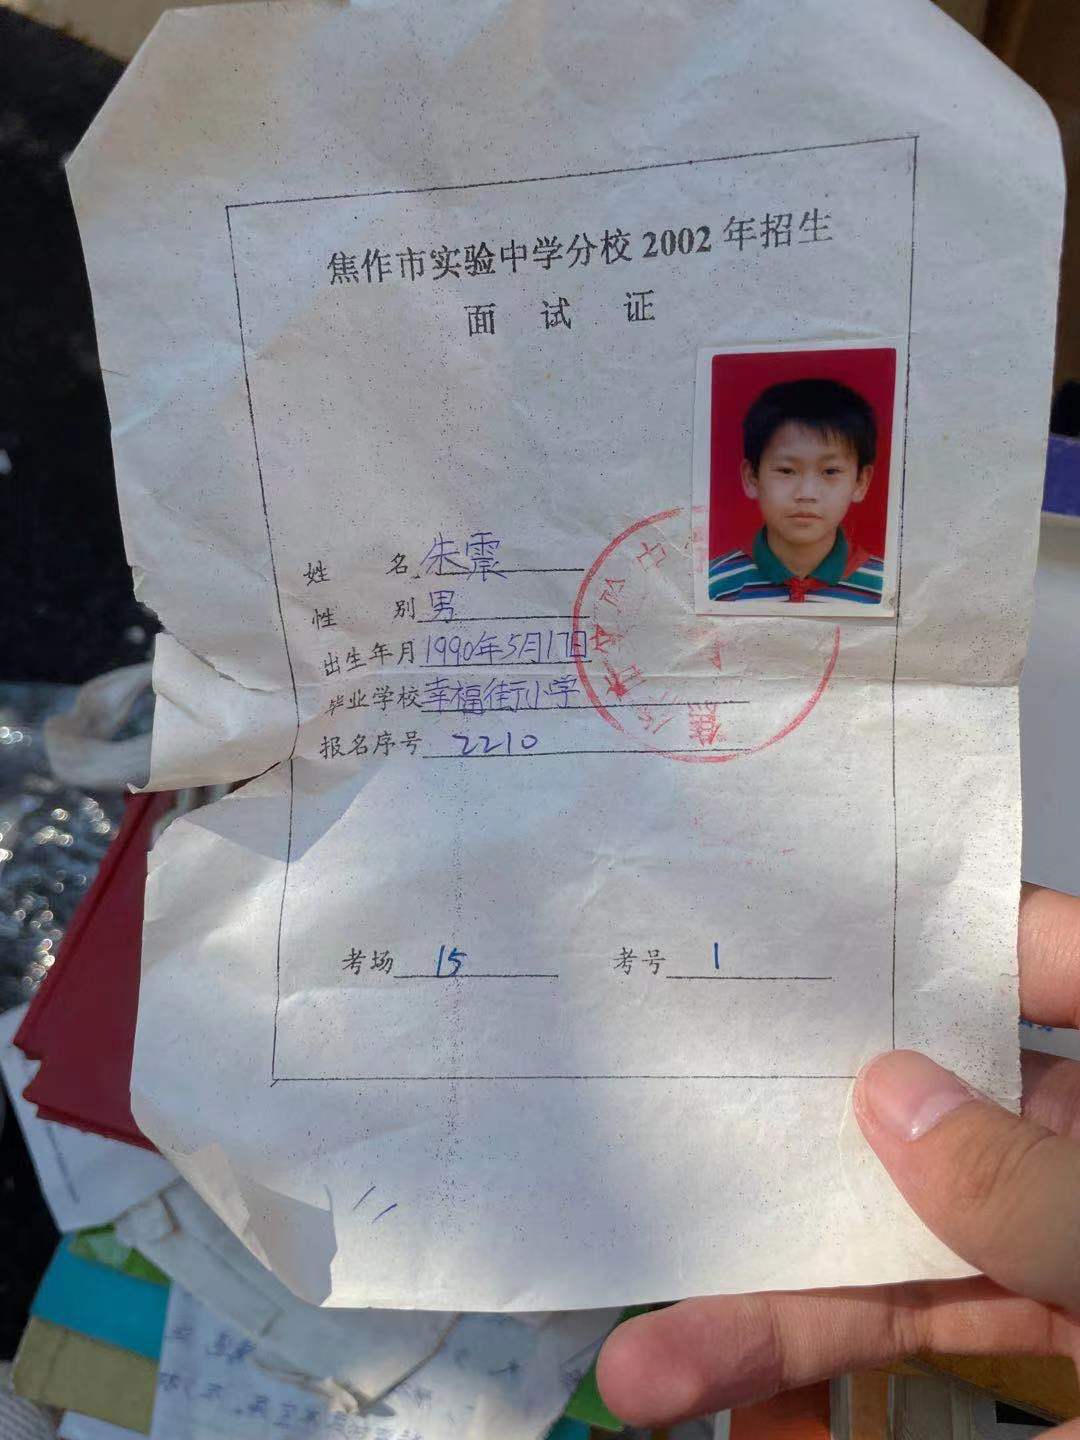 焦作市实验中学分校 2002 年招生
面 试 证
姓 名 朱震
性 别 男
出生年月 1990年5月17日
毕业学校 幸福街小学
报名序号 2210
考场 15 考号 1